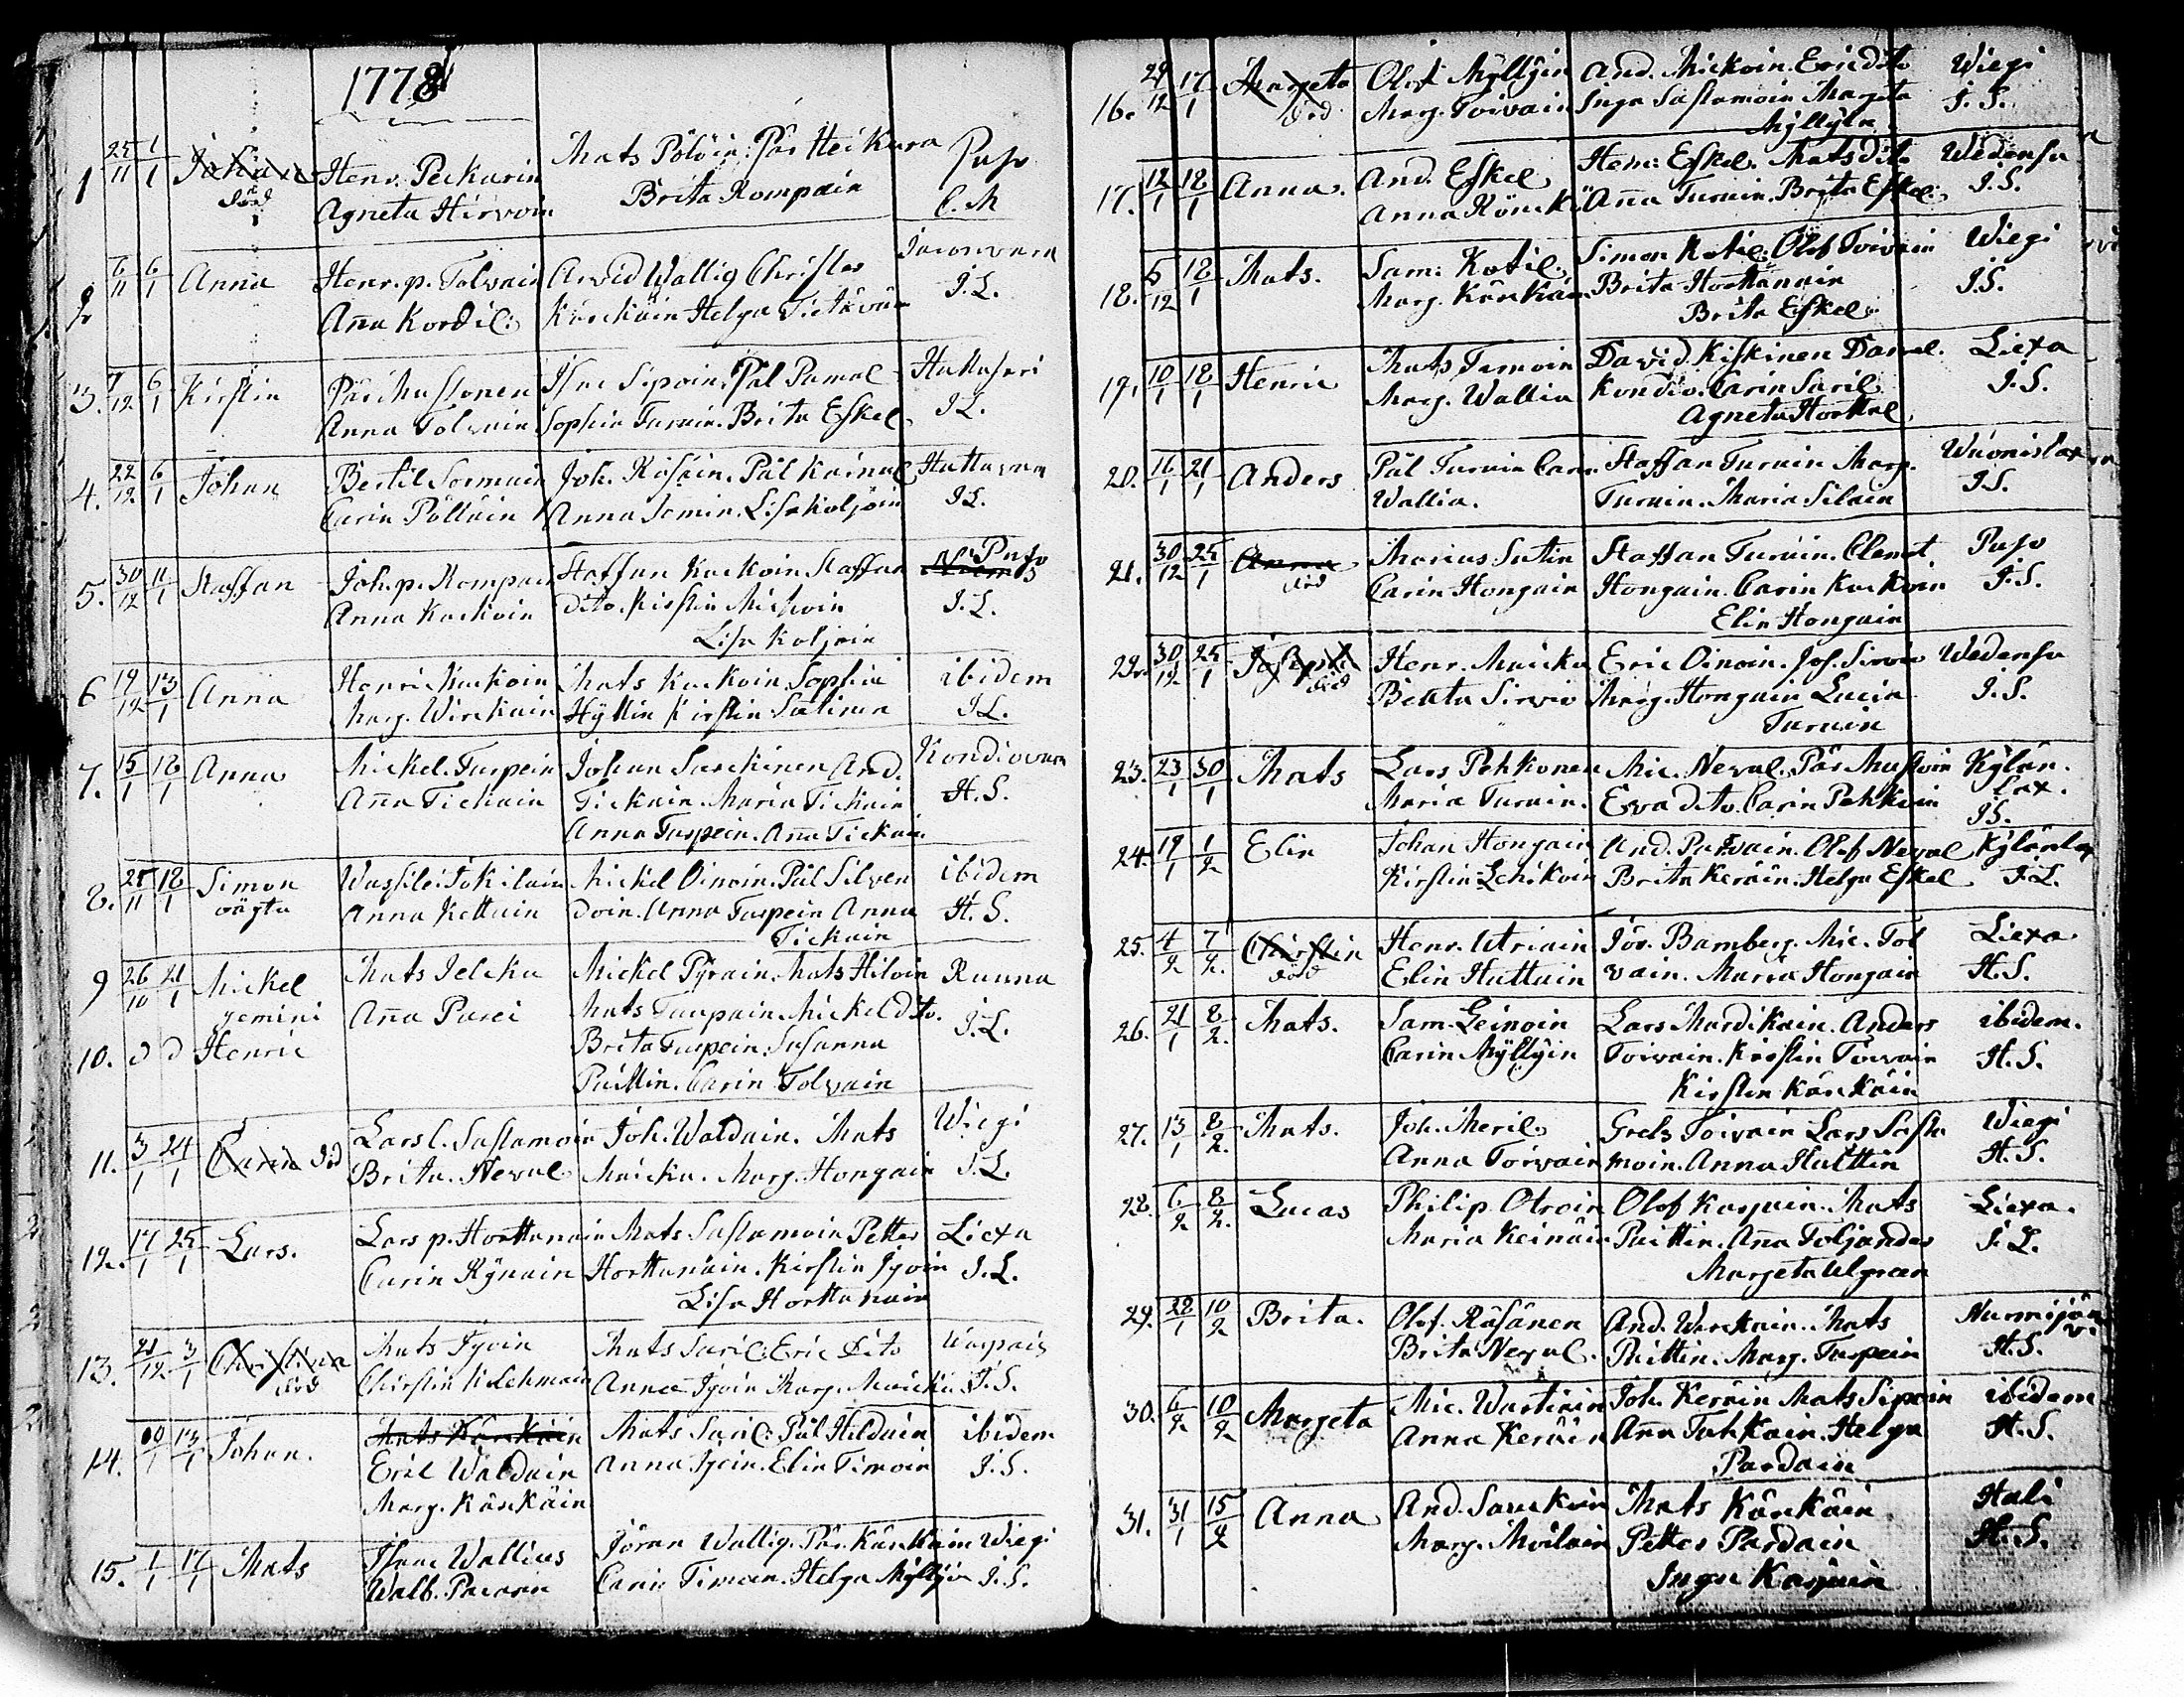 1778
1 25/11 1/1 Johan Henr. Peckarin Mats Pölöin. Pär Heickura Puso
död Agneta Hirvoin Brita Rompain C. M
2 6/11 6/1 Anna Henr. p. Tolvain Arvid Wallig Christer
Anna Kordel: Kärckäin Helga Tietäväi I. L.
3. 7/12 6/1 Kirstin Pär Mustonen Isac Sipoin. Pål Pamal
Anna Tolvain Sophia Turuin. Brita Eskel I L.
4. 22/12 6/1 Johan Bertil Sormuin Joh. Räsäin. Pål Kainul Hattuvara
Carin Pöllöin Anna Romin. Lisa Koljoin I L.
5. 30/12 11/1 Staffan Joh. p. Rompain Staffan Kuckoin Staffan Puso
Anna Kuckoin Dito. Kirstin Mickoin I. L.
Lisa Koljoin
6 19/12 13/1 Anna Henric Kuckoin Mats Kuckoin Sophia ibidem
Marg. Wirckuin Hÿttin Kirstin I L.
7. 15/1 18/1 Anna Mickel. Turpein Johan Sarckinen And. Kondiovara
Anna Tickain Tickain. Maria Tickain H. S.
Anna Turpein. Anna Tickain
8. 25/11 18/1 Simon Mickel Oinoin. Pål Silven ibidem
oägta Anna Kettuin doin. Anna Turpein Anna H. S.
Tickain
9 26/10 21/1 Mickel Mats Jelcku Mickel Pÿrain. Mats Hiloin Ruuna
gemini Anna Purci Mats Turpain. Mickel Dito. I. L.
10. d d Henric Brita Turpein. Susanna
Puittin. Carin Tolvain
11. 3/1 24/1 Carin död Lars l. Sastamoin Joh. Waldain. Mats Wiegi
Brita. Neval Maicku. Marg. Hongain I. L.
12. 17/1 25/1 Lars. Lars p. Horttanain Mats Sastamoin Petter Liexa
Carin Rÿnäin Horttanain. Kirstin Ijoin I. L.
Lisa Horttanain
13. 21/12 3/1 Christina Mats Ijoin Mats Saril: Eric Dito
död Chirstin Kilchmain Anna Ijoin Marg. Maickin I. S.
14. 13/1 Johan. Mats Kärckäin Mats Saril: Pål Hilduin ibidem
Eric Waldain Anna Ijoin. Elin Timoin I. S.
Marg. Kärckäin
15. 1/1 17/1 Mats Isac Wallius Jöran Wallig. Pär. Kärckäin Wiegi
Walb. Carin Timoin. Helga Mÿllÿin I. S.
16. 29/12 17/1 Margeta Olof Mÿllÿin And. Mickoin. Eric dito Wiegi
död Marg. Toivain Inga Sastamoin Margeta I. S.
Mÿllÿin
17. 12/1 18/1 Anna. And. Eskel Henr: Eskel. Mats dito Wedensu
Anna Rönckö Anna Turuin. Brita Eskel. I. S.
18. 5/12 18/1 Mats. Sam: Kotil. Simon Kotil: Olof Toivain Wiegi
Marg. Kärckäin Brita Horttanain I. S.
Brita Eskel.
19. 10/1 18/1 Henric Mats Timoin David. Kiskinen Daniel. Liexa
Marg. Wallia Kondio. Carin Saril. I. S.
Agneta Horttal
20. 16/1 21/1 Anders Pål Turuin Carin Staffan Turuin Marg. Wuonislax
Wallia. Turuin. Maria Silain I S.
21. 30/12 25/1 Anna Marcus Sutin Staffan Turuin. Clemet Puso
död Carin Hongain Hongain. Carin Kuckoin I. S.
Elin Hongain
22. 30/12 25/1 Joseph Henr. Maicku Eric Oinoin. Jos. Sirvio Wedensu
död Beata Sirvio Marg. Hongain Lucia I. S.
Turuin
23. 23/1 30/1 Mats Lars Pehkonen Mic. Neval. Pär Mustoin Kÿlän-
Maria Turuin. Eva dito. Carin Pehkoin lax.
I S.
24. 19/1 1/2 Elin Johan Hongain And. Parvain. Olof Neval Kÿlänlax
Kirstin Lehikoin Brita Keräin. Helga Eskel I. L.
25. 4/2 7/2. Chirstin Henr. Utriain Jör. Bamberg. Mic. Tol Liexa
död Elin Huttuin vain. Maria Hongain H. S.
26. 21/1 8/2. Mats. Sam. Leinoin Lars Mardikain. Anders ibidem.
Carin Mÿllÿin Toivain. Kirstin Toivain H. S.
Kirstin Kärckäin
27. 13/1 8/2. Mats. Joh. Meril. Grels Toivain Lars Sasta Wiegi
Anna Toivain moin. Anna Huttin H. S.
28. 6/2 8/2. Lucas Philip Otroin Olof Karjain. Mats Liexa.
Maria Keinäin Puittin. Anna Toljander I. L.
Margeta Ulgreen
29. 28/1 10/2 Brita. Olof. Räsänen And. Wirckuin. Mats Nurmijär
Brita Neval. Puittin. Marg. Turpein v.
H. S.
30. 6/2 10/2 Margeta Mic. Wartiain Joh. Keräin Mats Sipoin ibidem
Anna Keräin Anna Tuhkain. Helga H. S.
Pardain
31. 31/1 15/2 Anna And. Sarckoin Mats Kärckäin Hali
Marg. Moilain Petter Pardain H. S.
Inga Karjain